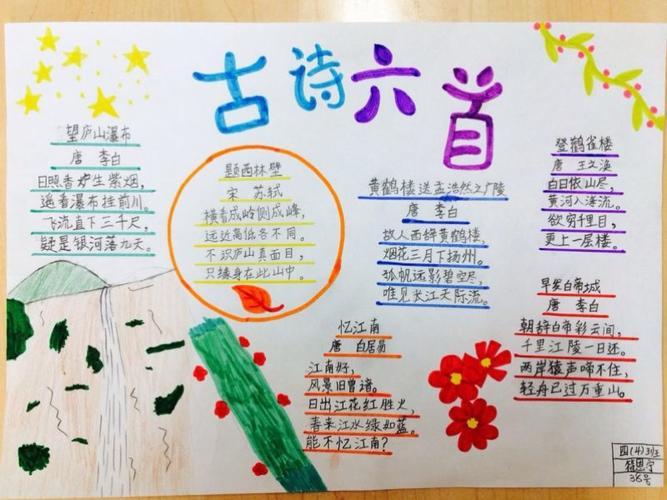 古诗六首
望庐山瀑布
唐 李白
日照香炉生紫烟,
遥看瀑布挂前川。
飞流直下三千尺,
疑是银河落九天。
题西林壁
宋 苏轼
横看成岭侧成峰,
远近高低各不同。
不识庐山真面目,
只缘身在此山中。
黄鹤楼送孟浩然之广陵
唐 李白
故人西辞黄鹤楼,
烟花三月下扬州。
孤帆远影碧空尽,
唯见长江天际流。
登鹤雀楼
唐 王之涣
白日依山尽,
黄河入海流。
欲穷千里目,
更上一层楼。
忆江南
唐 白居易
江南好,
风景旧曾谙。
日出江花红胜火,
春来江水绿如蓝。
能不忆江南?
早发白帝城
唐 李白
朝辞白帝彩云间,
千里江陵一日还。
两岸猿声啼不住,
轻舟已过万重山。
四(4)班
38号